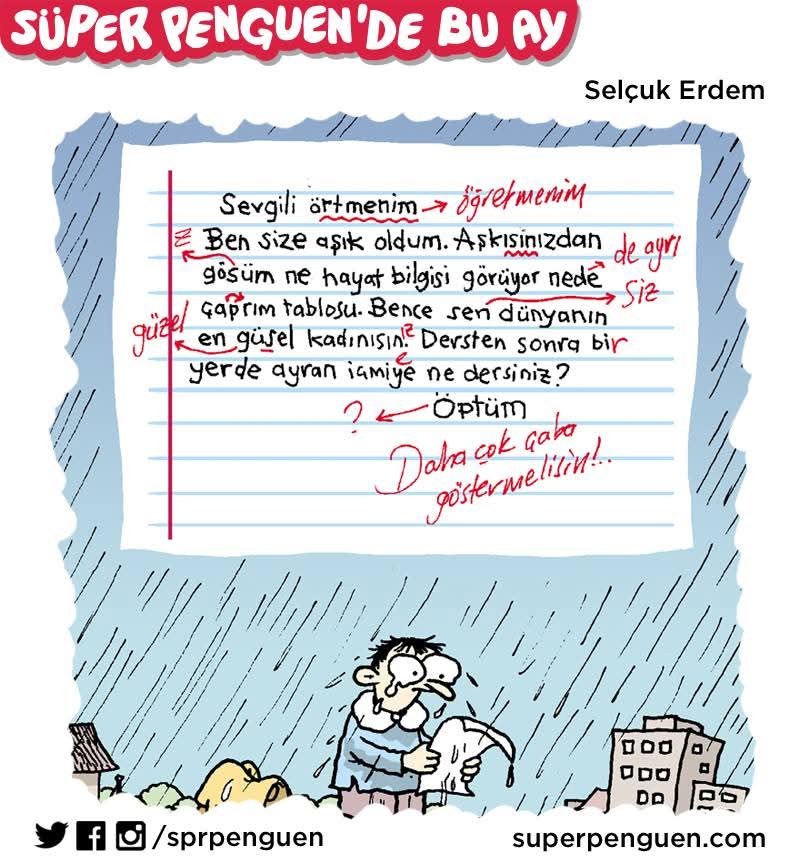 SÜPER PENGUEN'DE BU AY
Selçuk Erdem
Sevgili örtmenim → öğretmenim
z Ben size aşık oldum. Aşkısinızdan de ayrı
gösüm ne hayat bilgisi görüyor nede
çaprım tablosu. Bence sen dünyanın siz
güzel en güsel kadınısın. iz Dersten sonra bir
yerde ayran içmiye e ne dersiniz?
? ← Öptüm
Daha çok çaba
göstermelisin!..
/sprpenguen
superpenguen.com